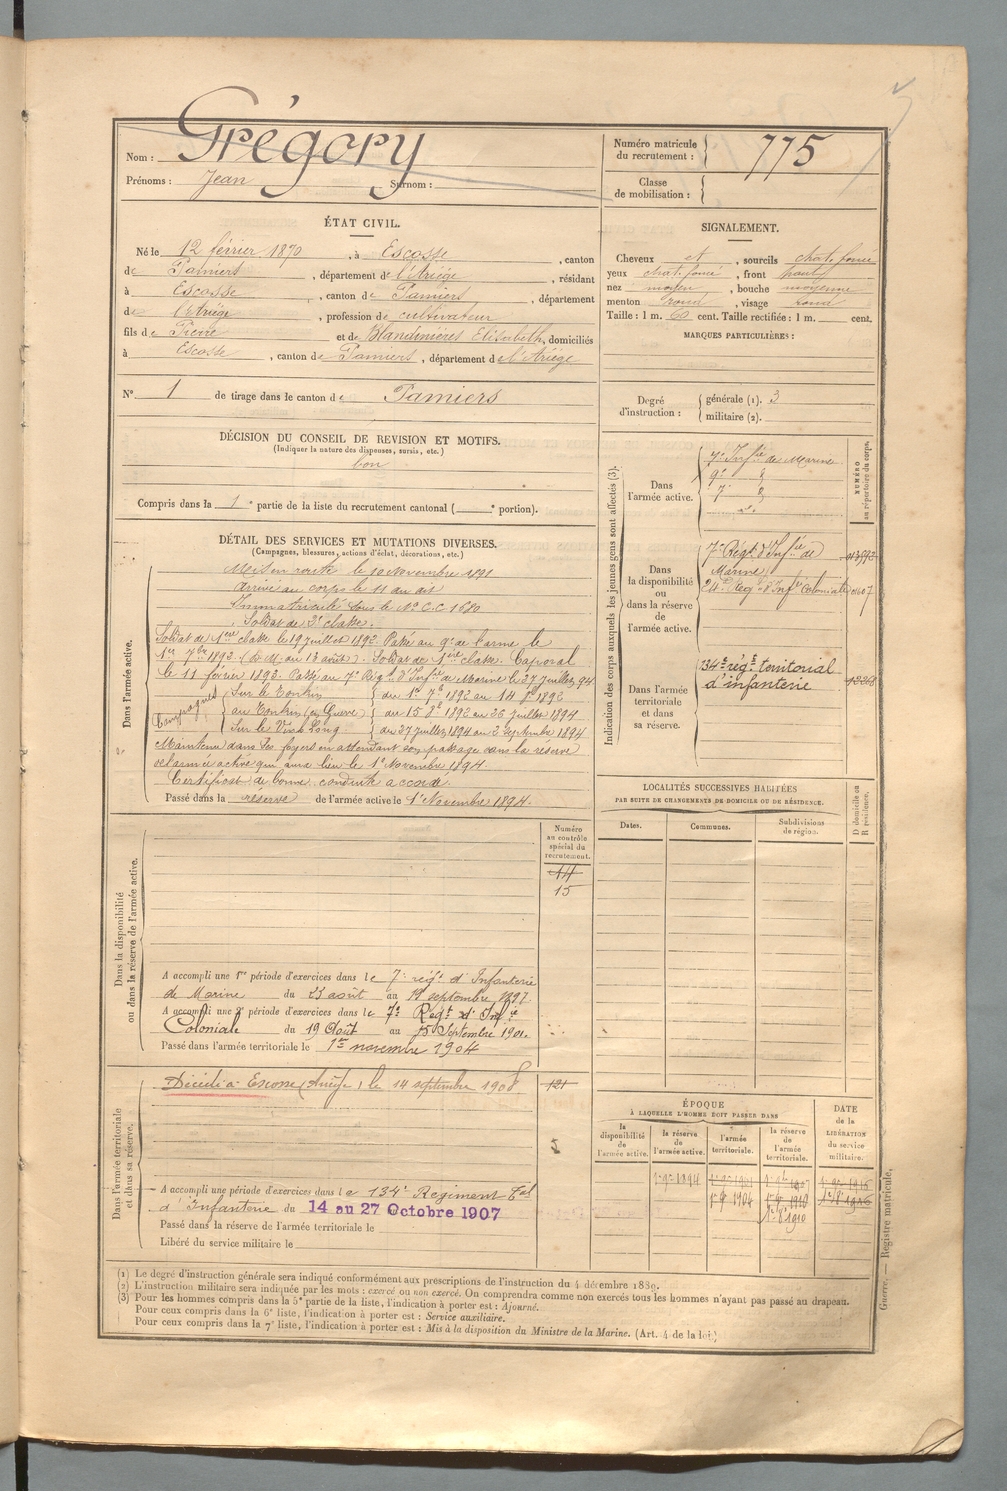 Nom : Grégory
Prénoms : Jean Surnom :
Numéro matricule du recrutement : 775
Classe de mobilisation :
ÉTAT CIVIL.
Né le 12 février 1870, à Escosse, canton
de Pamiers, département de l'Ariège, résidant
à Escosse, canton de Pamiers, département
de l'Ariège, profession de cultivateur
fils de Pierre et de Blandinières Elisabeth, domiciliés
à Escosse, canton de Pamiers, département de l'Ariège
N° 1 de tirage dans le canton de Pamiers
SIGNALEMENT.
Cheveux et, sourcils chat. foncé
yeux chat. foncé, front haut
nez moyen, bouche moyenne
menton rond, visage rond
Taille : 1 m. 60 cent. Taille rectifiée : 1 m. cent.
MARQUES PARTICULIÈRES :
Degré d'instruction : générale (1). 3
militaire (2).
DÉCISION DU CONSEIL DE REVISION ET MOTIFS.
(Indiquer la nature des dispenses, sursis, etc.)
bon
Compris dans la 1e partie de la liste du recrutement cantonal ( e portion).
DÉTAIL DES SERVICES ET MUTATIONS DIVERSES.
(Campagnes, blessures, actions d'éclat, décorations, etc.)
Dans l'armée active.
Mis en route le 10 Novembre 1891
arrivé au corps le 11 au dit
Immatriculé sous le N° C.C 1680
Soldat de 2e classe.
Soldat de 1ere classe le 19 juillet 1892. Passé au 9e de l'arme le
1er 7bre 1892 (D.M. du 13 août). Soldat de 1ère classe. Caporal
le 11 février 1893. Passé au 7e Régt d'Infie de Marine le 27 juillet 94
Campagnes
Sur le Tonkin du 1er 7e 1892 au 14 8e 1892
au Tonkin (en Guerre) du 15 8e 1892 au 26 juillet 1894
Sur le Vinh Long du 27 juillet 1894 au 2 septembre 1894
Maintenu dans ses foyers en attendant son passage dans la réserve
de l'armée active qui aura lieu le 1er Novembre 1894.
Certificat de bonne conduite accordé.
Passé dans la réserve de l'armée active le 1er Novembre 1894.
Indication des corps auxquels les jeunes gens sont affectés (3).
NUMÉRO au répertoire du corps.
Dans l'armée active.
7e Infie de Marine
9e
7e
Dans la disponibilité ou dans la réserve de l'armée active.
7e Régt d'Infie de Marine
24e Régt d'Infie Coloniale
Dans l'armée territoriale et dans sa réserve.
134e régt territorial d'infanterie
LOCALITÉS SUCCESSIVES HABITÉES
PAR SUITE DE CHANGEMENTS DE DOMICILE OU DE RÉSIDENCE.
Dates. Communes. Subdivisions de région. D domicile ou R résidence.
Dans la disponibilité ou dans la réserve de l'armée active.
Numéro au contrôle spécial du recrutement.
44
15
A accompli une 1re période d'exercices dans le 7e régt d'Infanterie
de Marine du 23 août au 19 septembre 1897.
A accompli une 2e période d'exercices dans le 7e Régt d'Infie
Coloniale du 19 Août au 15 Septembre 1901.
Passé dans l'armée territoriale le 1er novembre 1904
Dans l'armée territoriale et dans sa réserve.
Décédé à Escosse (Ariège) le 14 septembre 1908
121
A accompli une période d'exercices dans le 134e Régiment Tal
d'Infanterie du 14 au 27 Octobre 1907
Passé dans la réserve de l'armée territoriale le
Libéré du service militaire le
ÉPOQUE
À LAQUELLE L'HOMME DOIT PASSER DANS
DATE de la LIBÉRATION du service militaire.
la disponibilité de l'armée active.
la réserve de l'armée active.
l'armée territoriale.
la réserve de l'armée territoriale.
(1) Le degré d'instruction générale sera indiqué conformément aux prescriptions de l'instruction du 4 décembre 1889.
(2) L'instruction militaire sera indiquée par les mots : exercé ou non exercé. On comprendra comme non exercés tous les hommes n'ayant pas passé au drapeau.
(3) Pour les hommes compris dans la 5e partie de la liste, l'indication à porter est : Ajourné.
Pour ceux compris dans la 6e liste, l'indication à porter est : Service auxiliaire.
Pour ceux compris dans la 7e liste, l'indication à porter est : Mis à la disposition du Ministre de la Marine. (Art. 4 de la loi.)
Guerre. — Registre matricule.